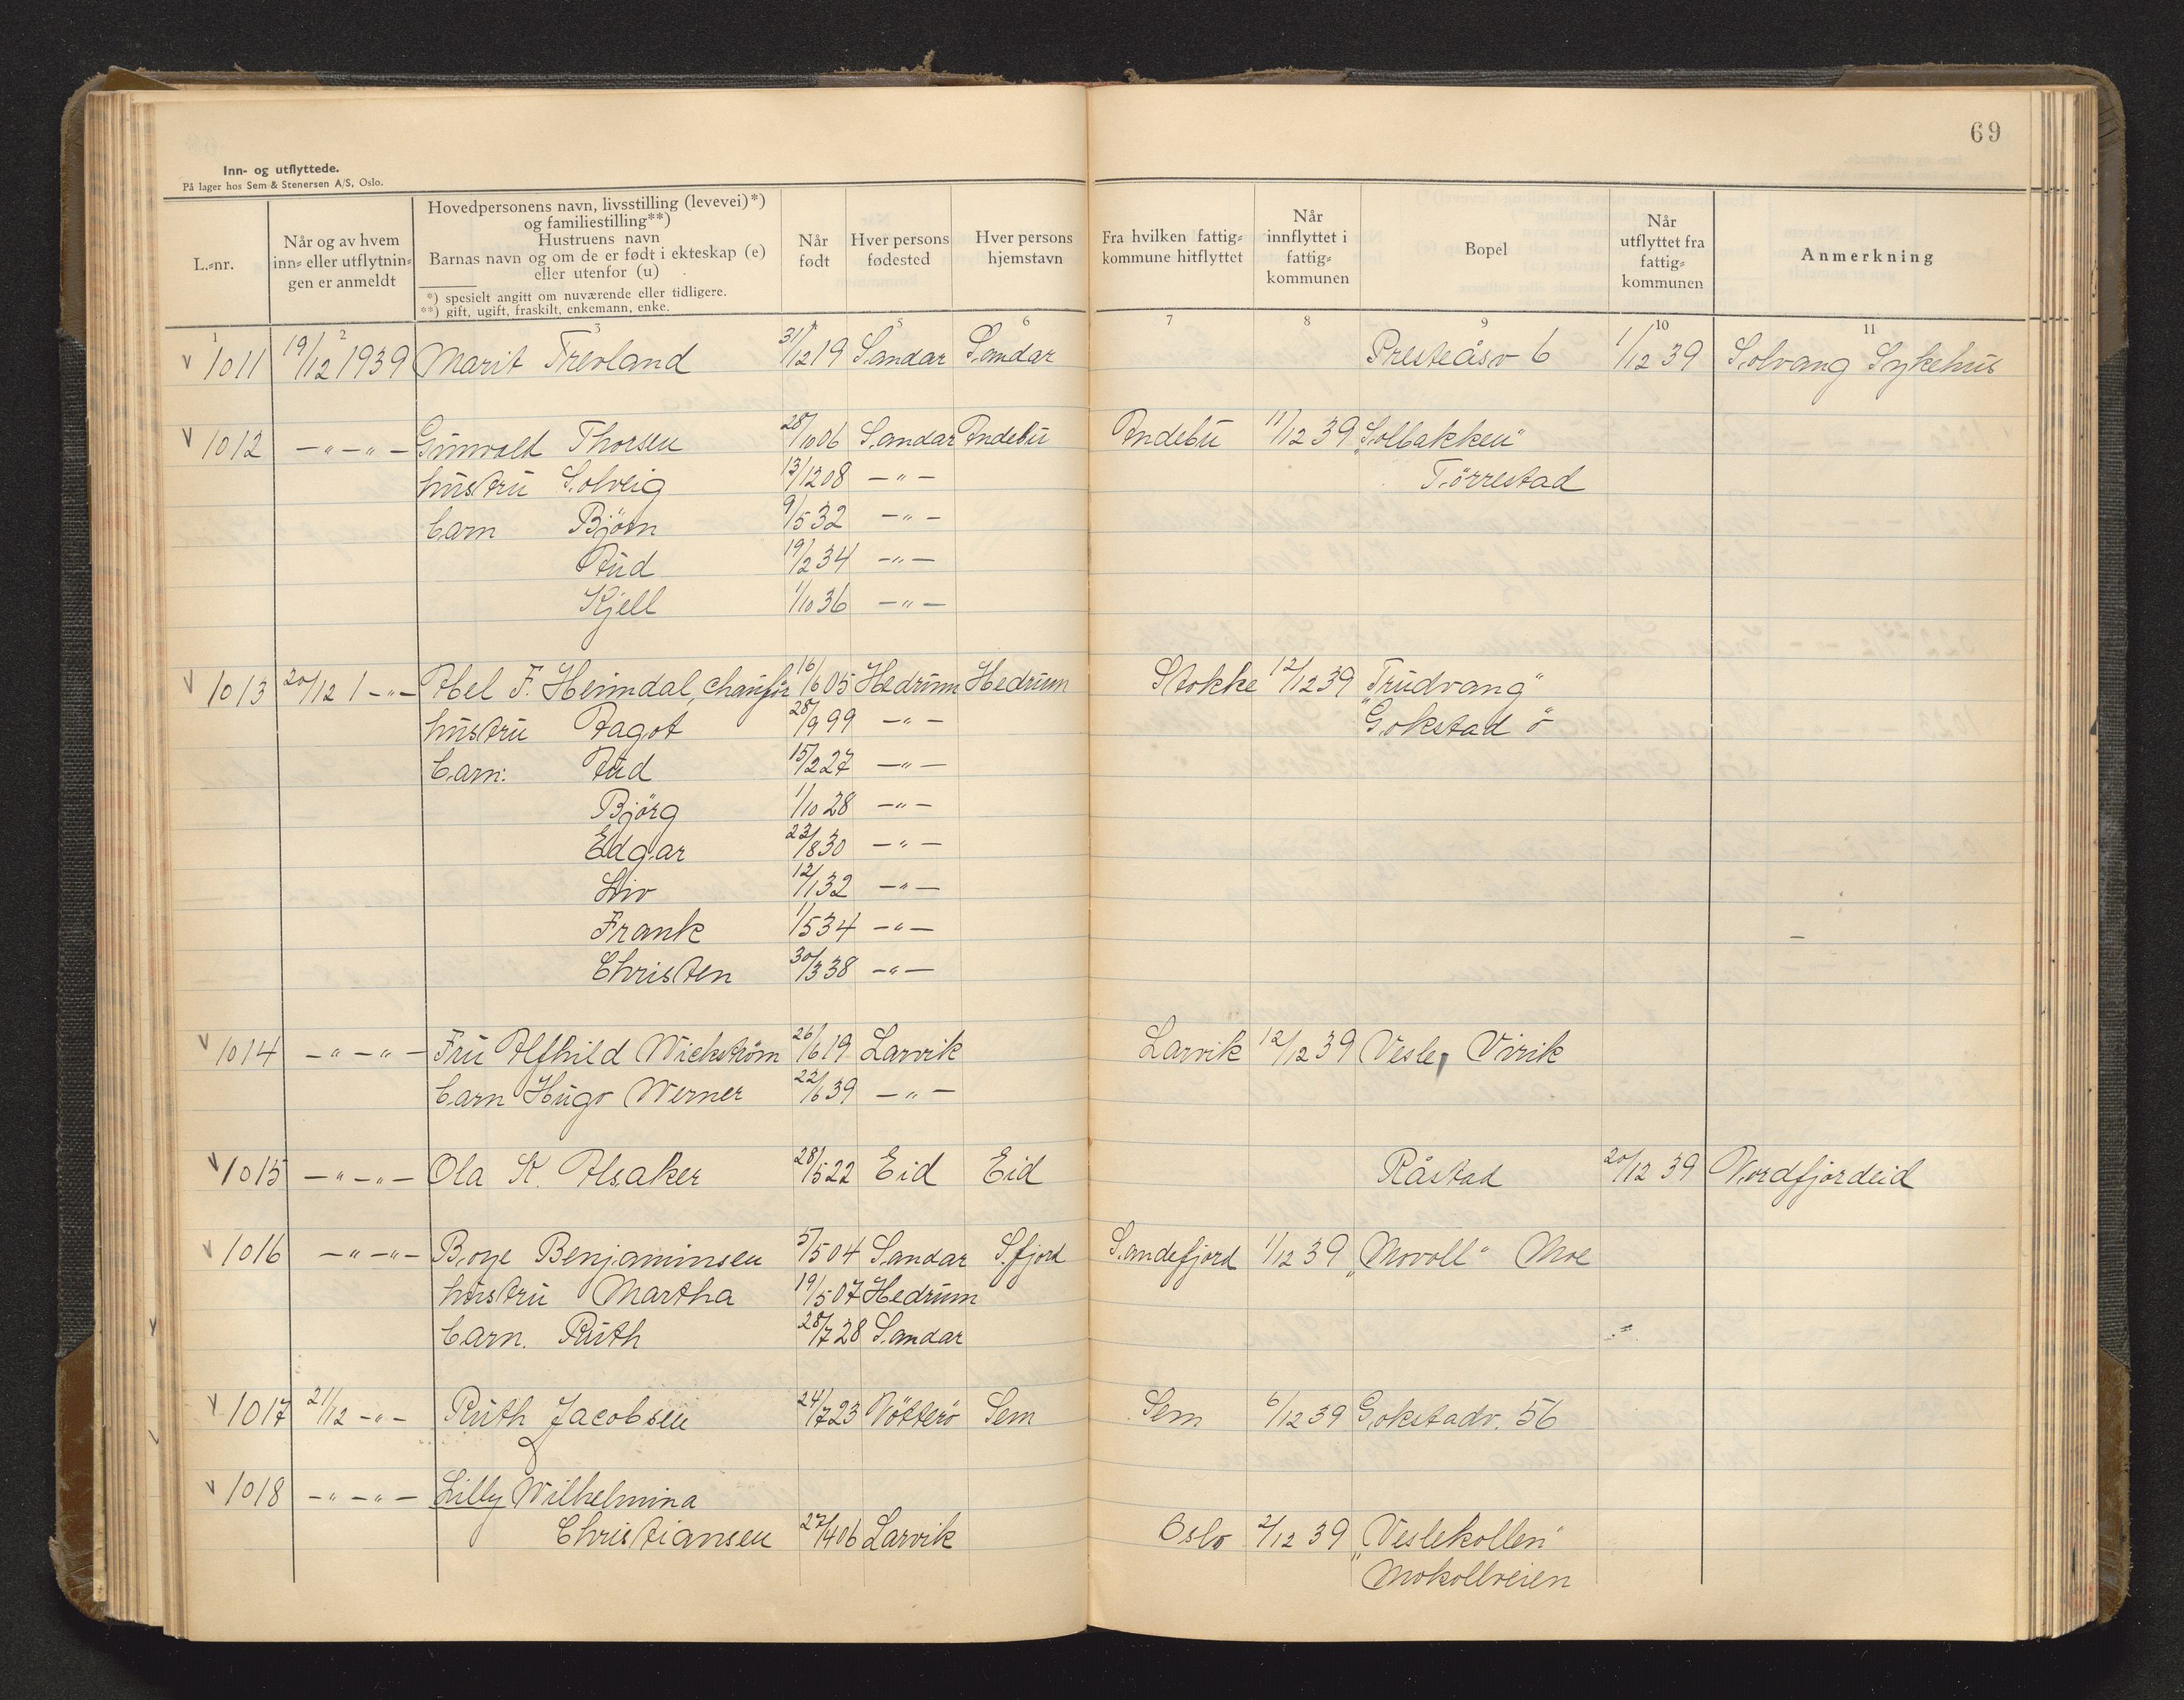 69
Inn- og utflyttede.
På lager hos Sem & Stenersen A/S, Oslo.
L.-nr.
Når og av hvem inn- eller utflytnin-gen er anmeldt
Hovedpersonens navn, livsstilling (levevei)*) og familiestilling**)
Hustruens navn
Barnas navn og om de er født i ekteskap (e) eller utenfor (u)
*) spesielt angitt om nuværende eller tidligere.
**) gift, ugift, fraskilt, enkemann, enke.
Når født
Hver persons fødested
Hver persons hjemstavn
Fra hvilken fattig-kommune hitflyttet
Når innflyttet i fattig-kommunen
Bopel
Når utflyttet fra fattig-kommunen
Anmerkning
1 2 3 4 5 6 7 8 9 10 11
v 1011 19/12 1939 Marit Trevland 31/12 19 Sandar Sandar Presteåsv 6 1/12 39 Solvang Sykehus
v 1012 -"-"- Gunvald Thorsen 28/10 06 Sandar Andebu Andebu 11/12 39 "Solbakken"
hustru Solveig 13/12 08 -"- Tørrestad
barn Bjørn 9/5 32 -"-
Aud 19/2 34 -"-
Kjell 1/10 36 -"-
v 1013 20/12 1-"- Abel F. Heimdal, chauffør 16/6 05 Hedrum Hedrum Stokke 12/12 39 "Trudvang"
hustru Dagot 28/9 99 -"- Gokstad ö
barn: Aud 15/2 27 -"-
Bjørg 1/10 28 -"-
Edgar 23/8 30 -"-
Liv 12/1 32 -"-
Frank 1/5 34 -"-
Christen 30/3 38 -"-
v 1014 -"-"- Fru Alfhild Wickstrøm 26/6 19 Larvik Larvik 12/12 39 Vesle Virik
barn Hugo Werner 22/6 39 -"-
v 1015 -"-"- Ola K. Alsaker 28/5 22 Eid Eid Råstad 20/12 39 Nordfjordeid
v 1016 -"-"- Boye Benjaminsen 5/5 04 Sandar S.fjord Sandefjord 1/12 39 "Movoll" Moe
hustru Martha 19/5 07 Hedrum
barn. Ruth 28/7 28 Sandar
v 1017 21/12 -"- Ruth Jacobsen 24/7 23 Nötterö Sem Sem 6/12 39 Gokstadv. 56
v 1018 -"-"- Lilly Wilhelmina
Christiansen 27/4 06 Larvik Oslo 2/12 39 "Veslekollen"
Mokollveien